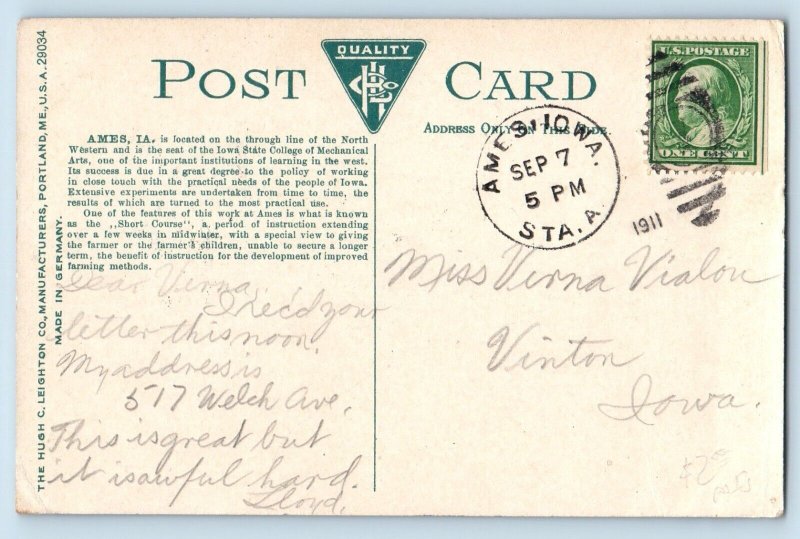 QUALITY
POST CARD
ADDRESS ONLY ON THIS SIDE.
U.S. POSTAGE
ONE CENT
AMES, IOWA.
SEP 7
5 PM
STA. A.
1911
THE HUGH C. LEIGHTON CO., MANUFACTURERS, PORTLAND, ME., U.S.A. 29034
MADE IN GERMANY.
AMES, IA. is located on the through line of the North
Western and is the seat of the Iowa State College of Mechanical
Arts, one of the important institutions of learning in the west.
Its success is due in a great degree to the policy of working
in close touch with the practical needs of the people of Iowa.
Extensive experiments are undertaken from time to time, the
results of which are turned to the most practical use.
One of the features of this work at Ames is what is known
as the ,,Short Course", a period of instruction extending
over a few weeks in midwinter, with a special view to giving
the farmer or the farmer's children, unable to secure a longer
term, the benefit of instruction for the development of improved
farming methods.
Dear Verna,
I rec'd your
letter this noon.
My address is
517 Welch Ave.
This is great but
it is awful hard.
Lloyd.
Miss Verna Vialou
Vinton
Iowa.